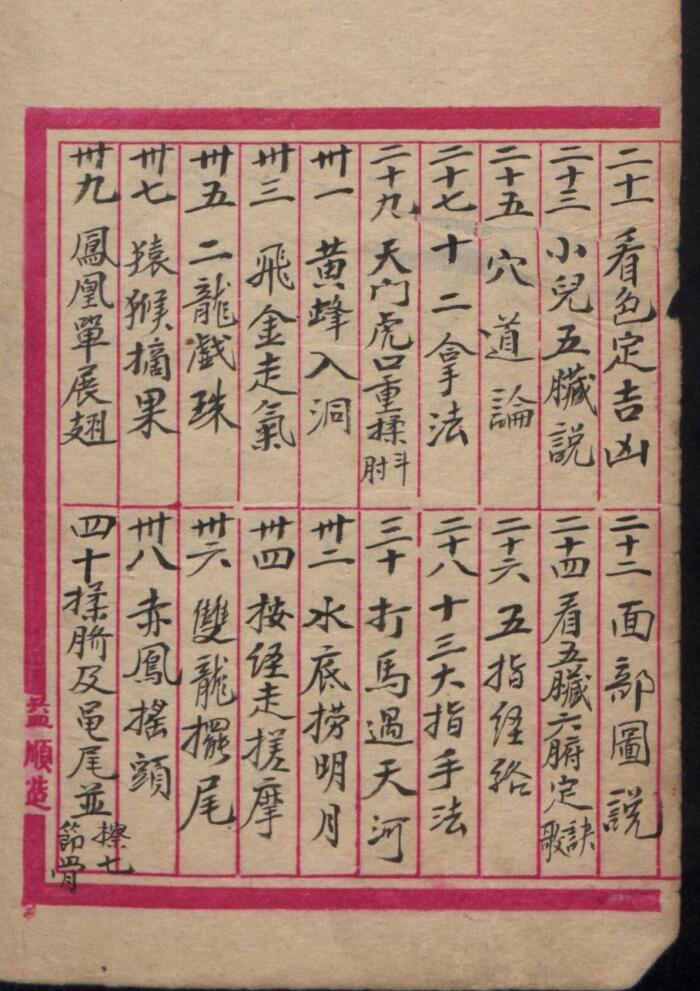 二十一 看色定吉凶
二十二 面部圖説
二十三 小兒五臟説
二十四 看五臟六腑定訣歌
二十五 穴道論
二十六 五指经络
二十七 十二拿法
二十八 十三大指手法
二十九 天门虎口重揉斗肘
三十 打馬過天河
卅一 黄蜂入洞
卅二 水底捞明月
卅三 飛金走氣
卅四 按经走搓摩
卅五 二龍戲珠
卅六 雙龍擺尾
卅七 猿猴摘果
卅八 赤鳳搖頭
卅九 鳳凰單展翅
四十 揉臍及黾尾並擦七節骨
益順造